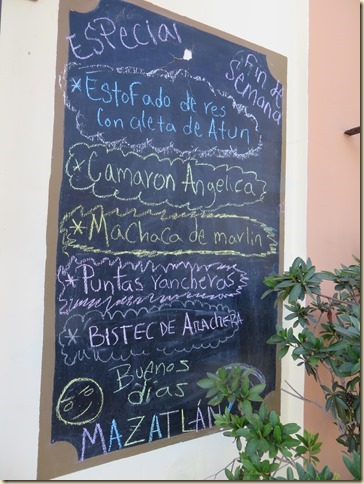 Especial
Fin de
Semana
* Estofado de res
Con aleta de Atun
* Camaron Angelica
* Machaca de marlin
* Puntas rancheras
* BISTEC DE ARACHERA
Buenos
dias
MAZATLÁN